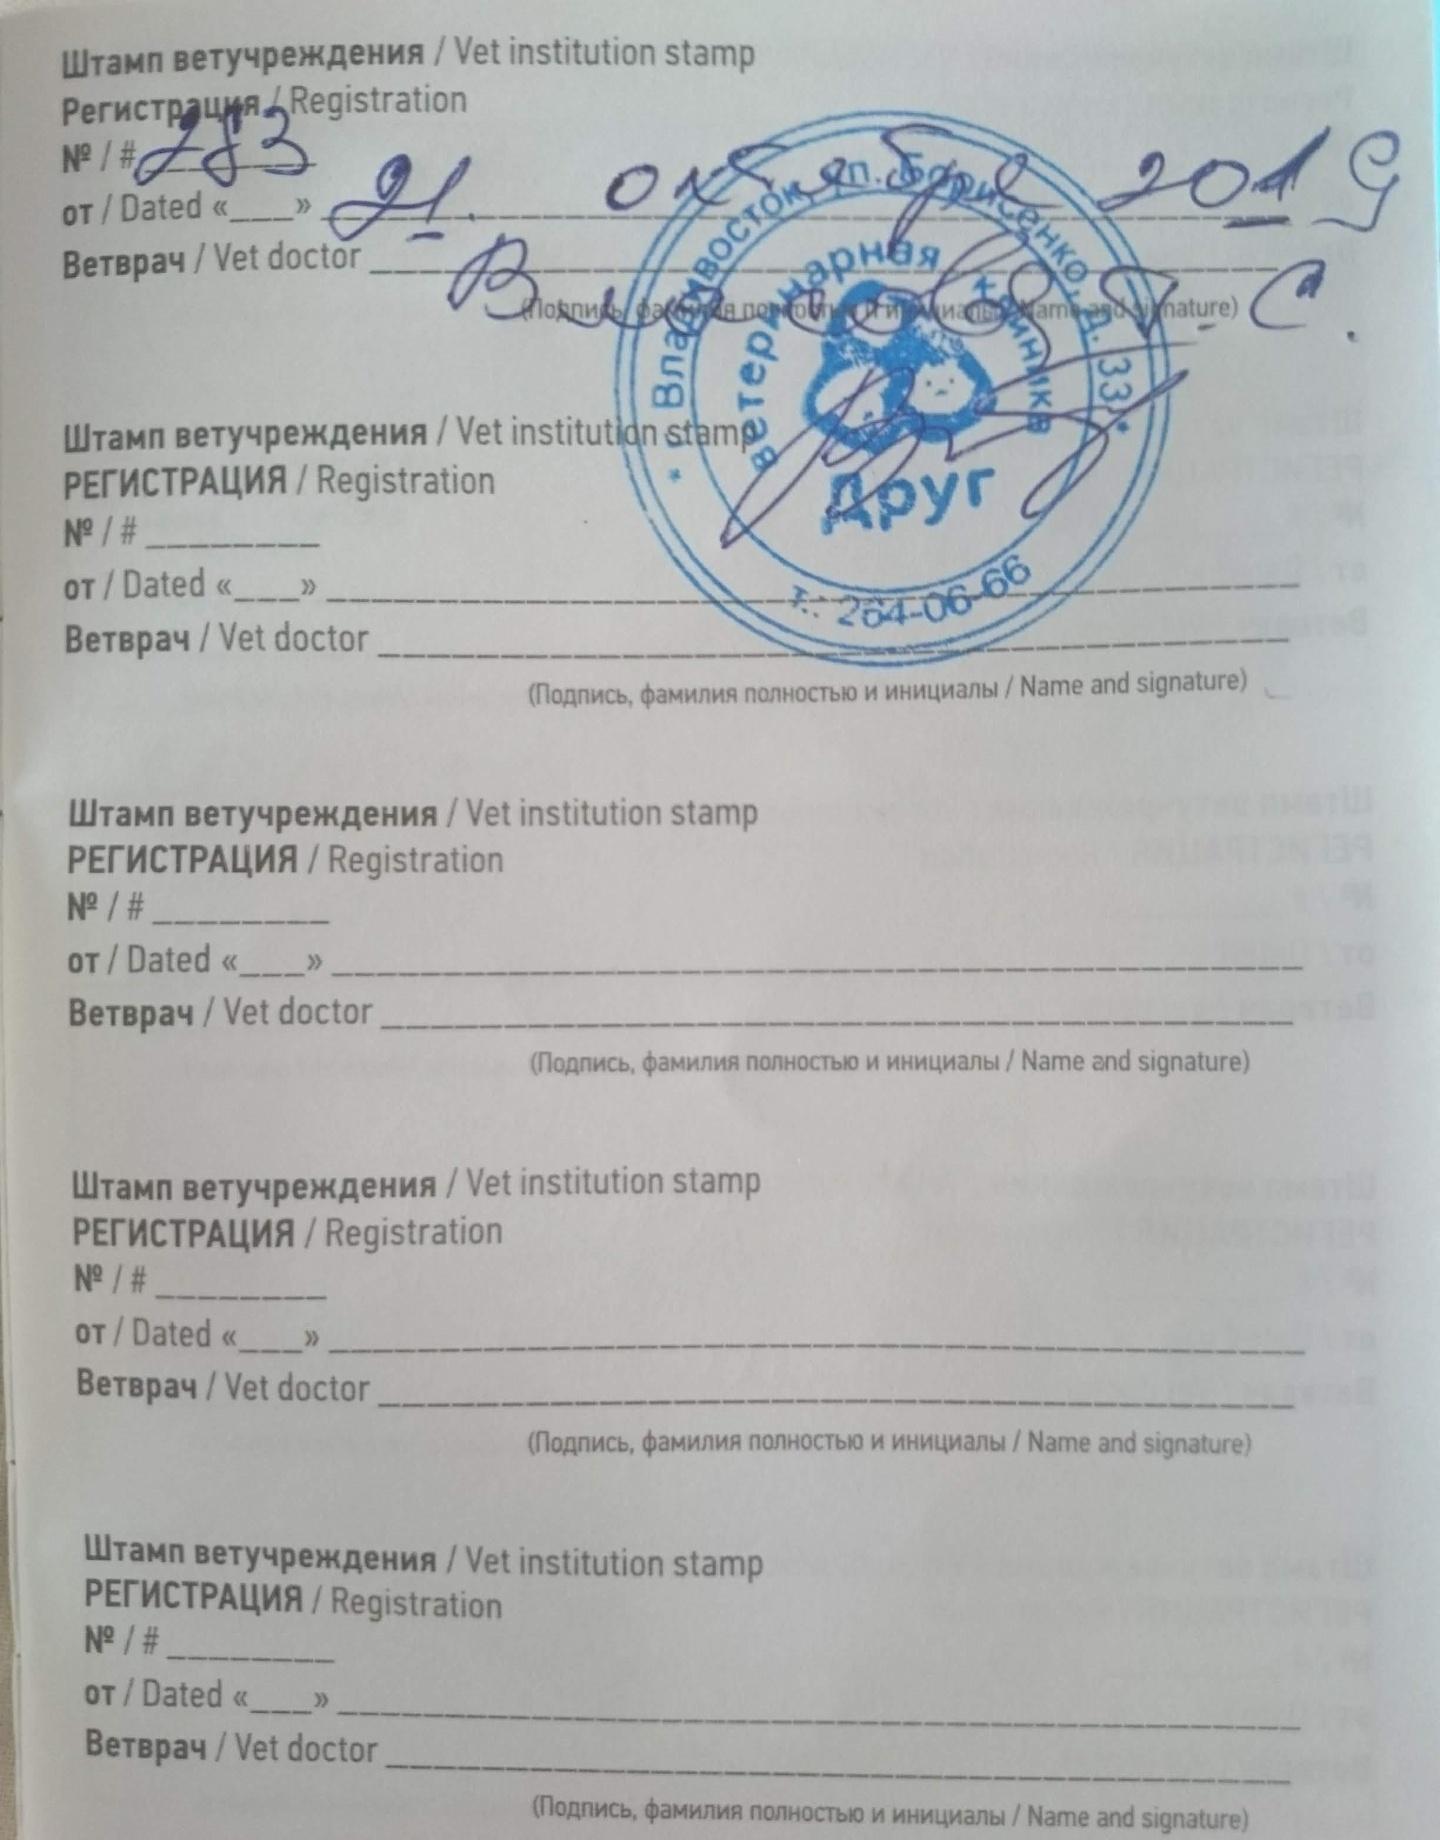 Штамп ветучреждения / Vet institution stamp
Регистрация / Registration
№ / # 283
от / Dated «___» 21. октября 2019
Ветврач / Vet doctor Т. С.
(Подпись, фамилия полностью и инициалы / Name and signature)
* г. Владивосток, ул. Борисенко, д. 33 *
ветеринарная клиника
Друг
т.: 264-06-66
Штамп ветучреждения / Vet institution stamp
РЕГИСТРАЦИЯ / Registration
№ / # ________
от / Dated «___»
Ветврач / Vet doctor
(Подпись, фамилия полностью и инициалы / Name and signature)
Штамп ветучреждения / Vet institution stamp
РЕГИСТРАЦИЯ / Registration
№ / # ________
от / Dated «___»
Ветврач / Vet doctor
(Подпись, фамилия полностью и инициалы / Name and signature)
Штамп ветучреждения / Vet institution stamp
РЕГИСТРАЦИЯ / Registration
№ / # ________
от / Dated «___»
Ветврач / Vet doctor
(Подпись, фамилия полностью и инициалы / Name and signature)
Штамп ветучреждения / Vet institution stamp
РЕГИСТРАЦИЯ / Registration
№ / # ________
от / Dated «___»
Ветврач / Vet doctor
(Подпись, фамилия полностью и инициалы / Name and signature)